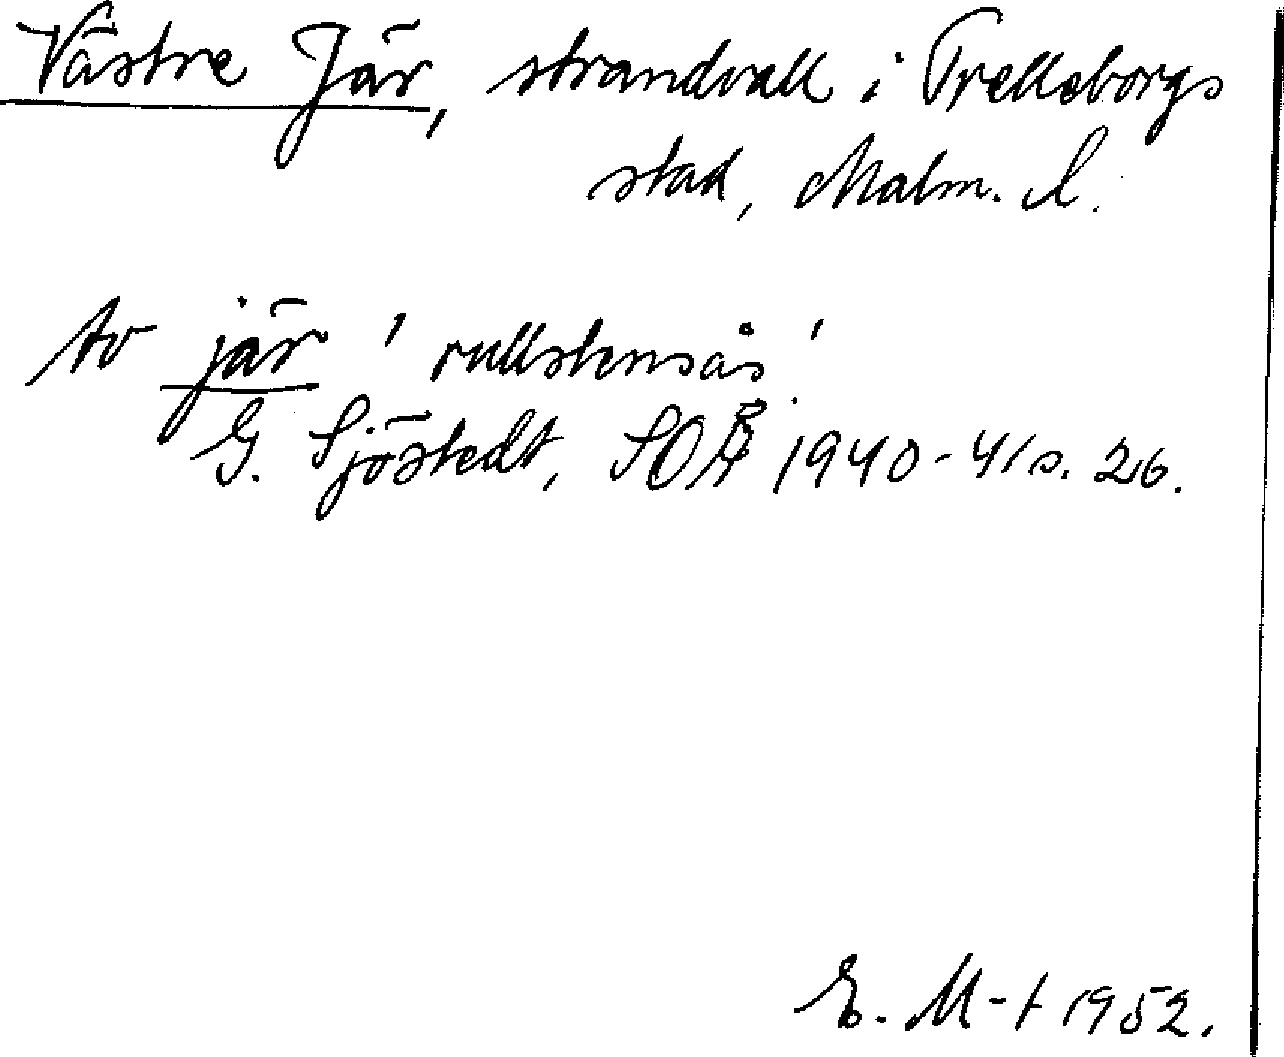 Västre Jär, strandvall i Trelleborgs
stad, Malm. l.
Av jär 'rullstensås'.
G. Sjöstedt, SOÅ 1940-41 s. 26.
E. M-t 1952.